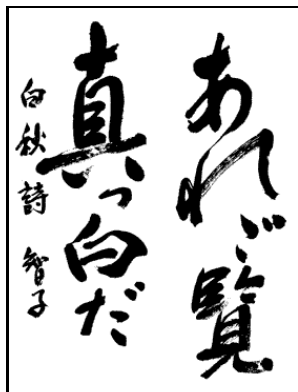 あれご覧
真っ白だ
白秋詩 智子